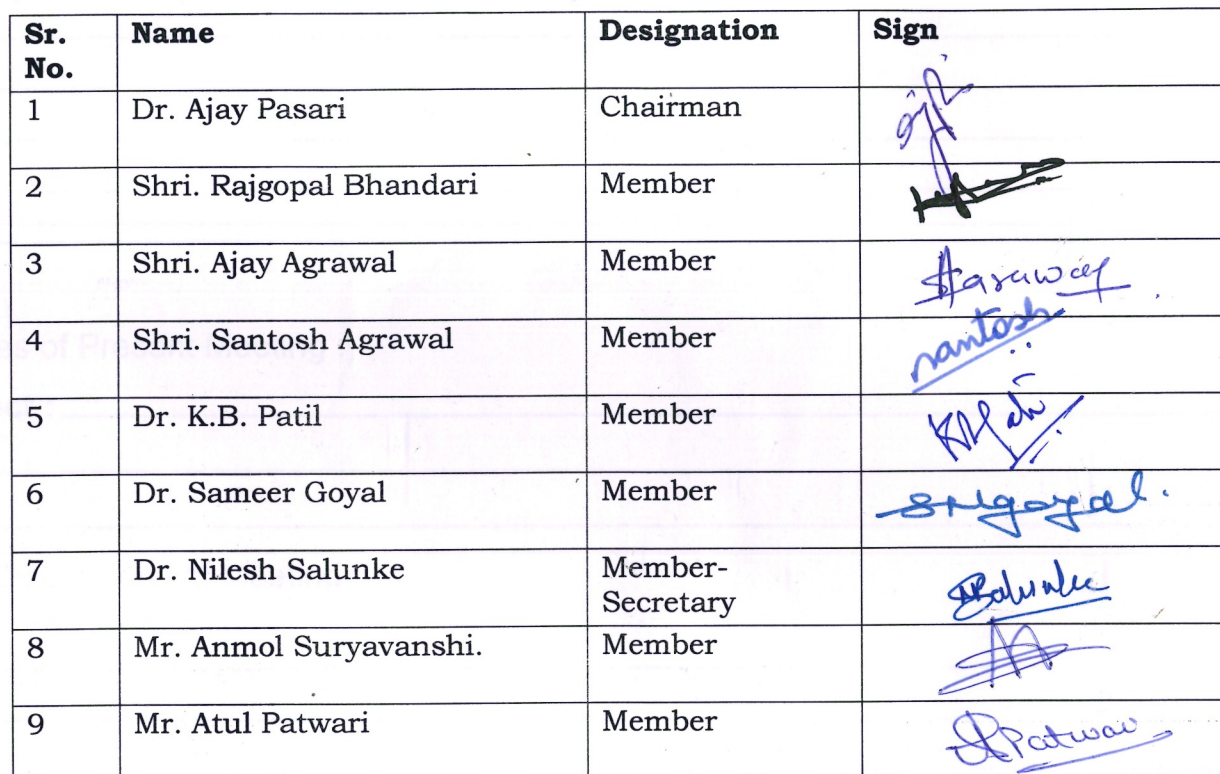 Sr. No. Name Designation Sign
1 Dr. Ajay Pasari Chairman
2 Shri. Rajgopal Bhandari Member
3 Shri. Ajay Agrawal Member Aarawal
4 Shri. Santosh Agrawal Member santosh
5 Dr. K.B. Patil Member KBPatil
6 Dr. Sameer Goyal Member srigoyal.
7 Dr. Nilesh Salunke Member-Secretary NSalunke
8 Mr. Anmol Suryavanshi. Member
9 Mr. Atul Patwari Member APatwari